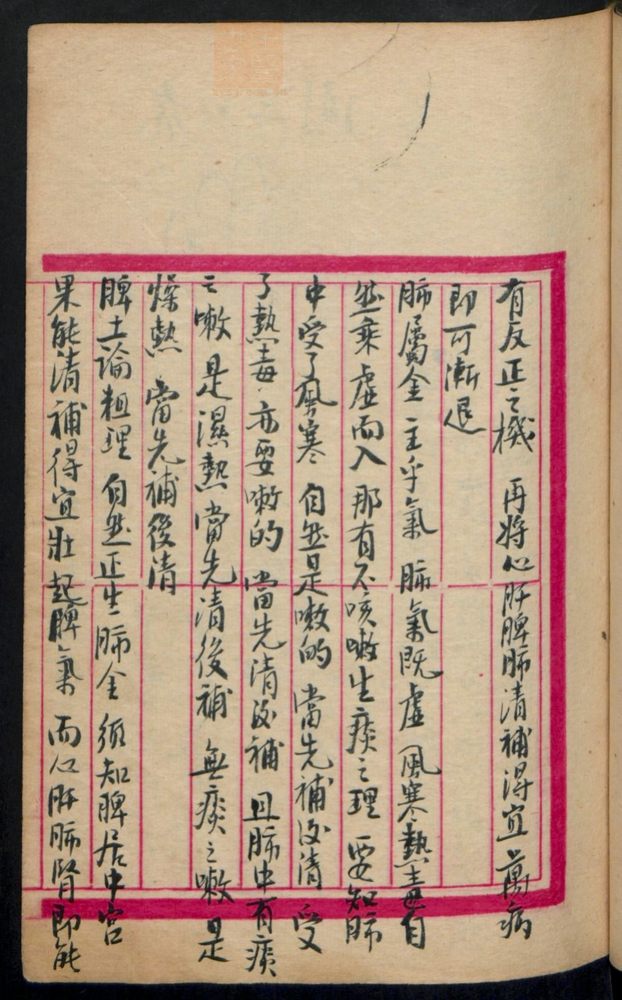 有反正之機 再將心肝脾肺清補得宜 萬病
即可漸退
肺屬金 主乎氣 肺氣既虛 風寒熱毒自
然乘虛而入 那有不咳嗽生痰之理 要知肺
中受了風寒 自然是嗽的 當先補後清 受
了熱毒 亦要嗽的 當先清後補 且肺中有痰
之嗽 是濕熱 當先清後補 無痰之嗽 是
燥熱 當先補後清
脾土論粗理 自然正生肺金 須知脾居中宮
果能清補得宜 壯起脾氣 而心肝肺腎即能